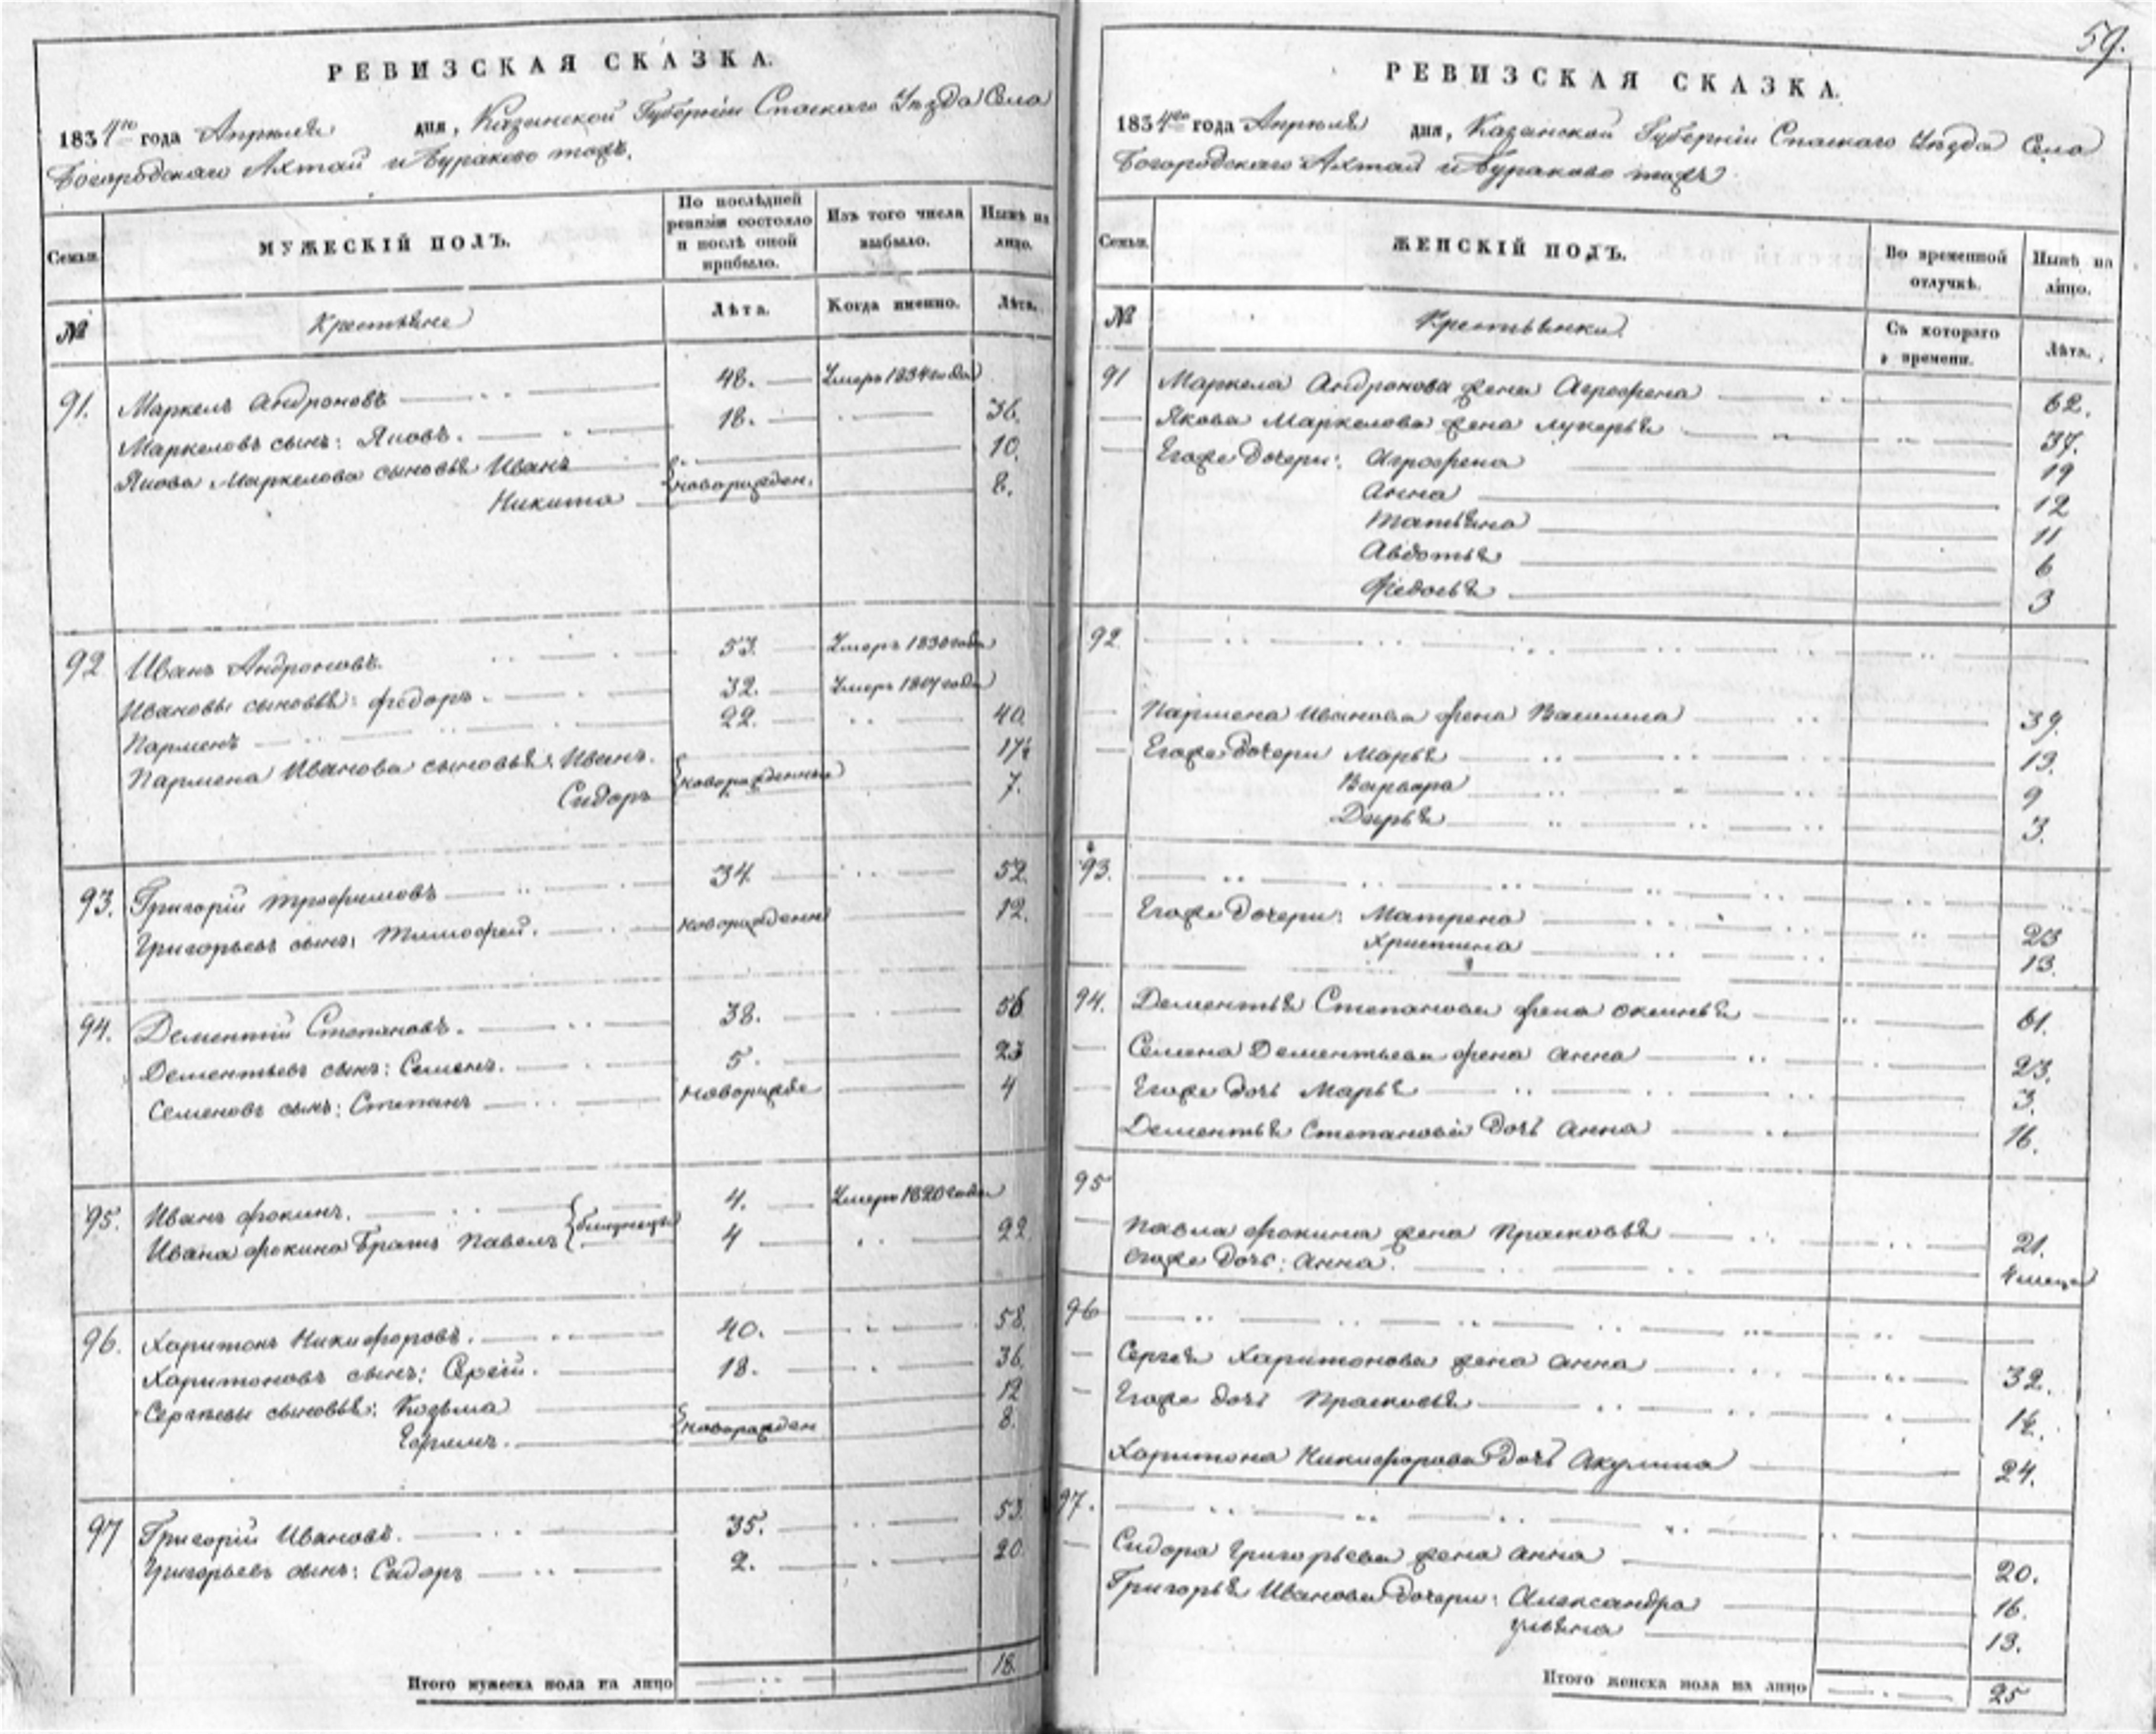 РЕВИЗСКАЯ СКАЗКА.
1834го года Апреля дня, Казанской Губернiи Спаскаго Уѣзда Села
Богородскаго Ахтай и Бураково тожъ.
Семьи.
МУЖЕСКIЙ ПОЛЪ.
По послѣдней ревизiи состояло и послѣ оной прибыло.
Изъ того числа выбыло.
Нынѣ на лицо.
№
Крестьяне
Лѣта.
Когда именно.
Лѣта.
91. Маркелъ Андроновъ 48. Умеръ 1834 года
Маркеловъ сынъ: Яковъ. 18. 36.
Якова Маркелова сыновья Иванъ 10.
Никита новорожден. 8.
92 Иванъ Андроновъ. 53. Умеръ 1830 года
Ивановы сыновья: Федоръ. 32. Умеръ года
Парменъ 22. 40.
Пармена Иванова сыновья: Иванъ. 17
Сидоръ новорожденные 7.
93. Григорiй Трофимовъ 34 52.
Григорьевъ сынъ: Тимофей. новорожденн 12.
94. Дементiй Степановъ. 38. 56
Дементьевъ сынъ: Семенъ. 5. 23
Семеновъ сынъ: Степанъ новорожде 4
95. Иванъ Фокинъ. близнецы 4. Умеръ 1820 года
Ивана Фокина братъ Павелъ 4 22.
96. Харитонъ Никифоровъ. 40. 58.
Харитоновъ сынъ: Сергѣй. 18. 36.
Сергѣевы сыновья: Козьма 12
Ефремъ. новорожден 8.
97 Григорiй Ивановъ. 35. 53.
Григорьевъ сынъ: Сидоръ 2. 20.
Итого мужеска пола на лицо 18.
59.
РЕВИЗСКАЯ СКАЗКА.
1834го года Апреля дня, Казанской Губернiи Спаскаго Уѣзда Села
Богородскаго Ахтай и Бураково тожъ
Семьи.
ЖЕНСКIЙ ПОЛЪ.
Во временной отлучкѣ.
Нынѣ на лицо.
№
Крестьянки.
Съ котораго времени.
Лѣта.
91 Маркела Андронова жена Агрофена 62.
Якова Маркелова жена Лукерья 37.
Егоже дочери: Агрофена 19
Анна 12
Татьяна 11
Авдотья 6
Федосья 3
92.
Пармена Иванова жена Василиса 39.
Егоже дочери Марья 13.
Варвара 9
Дарья 3.
93.
Егоже дочери: Матрена 23
Христина 13.
94. Дементья Степанова жена Оксинья 61.
Семена Дементьева жена Анна 23.
Егоже дочь Марья 3.
Дементья Степанова дочь Анна 16.
95
Павла Фокина жена Прасковья 21.
Егоже дочь: Анна. 4 месяца
96
Сергея Харитонова жена Анна 32.
Егоже дочь Прасковья 14.
Харитона Никифорова дочь Акулина 24.
97.
Сидора Григорьева жена Анна 20.
Григорья Иванова дочери: Александра 16.
Ульяна 13.
Итого женска пола на лицо 25